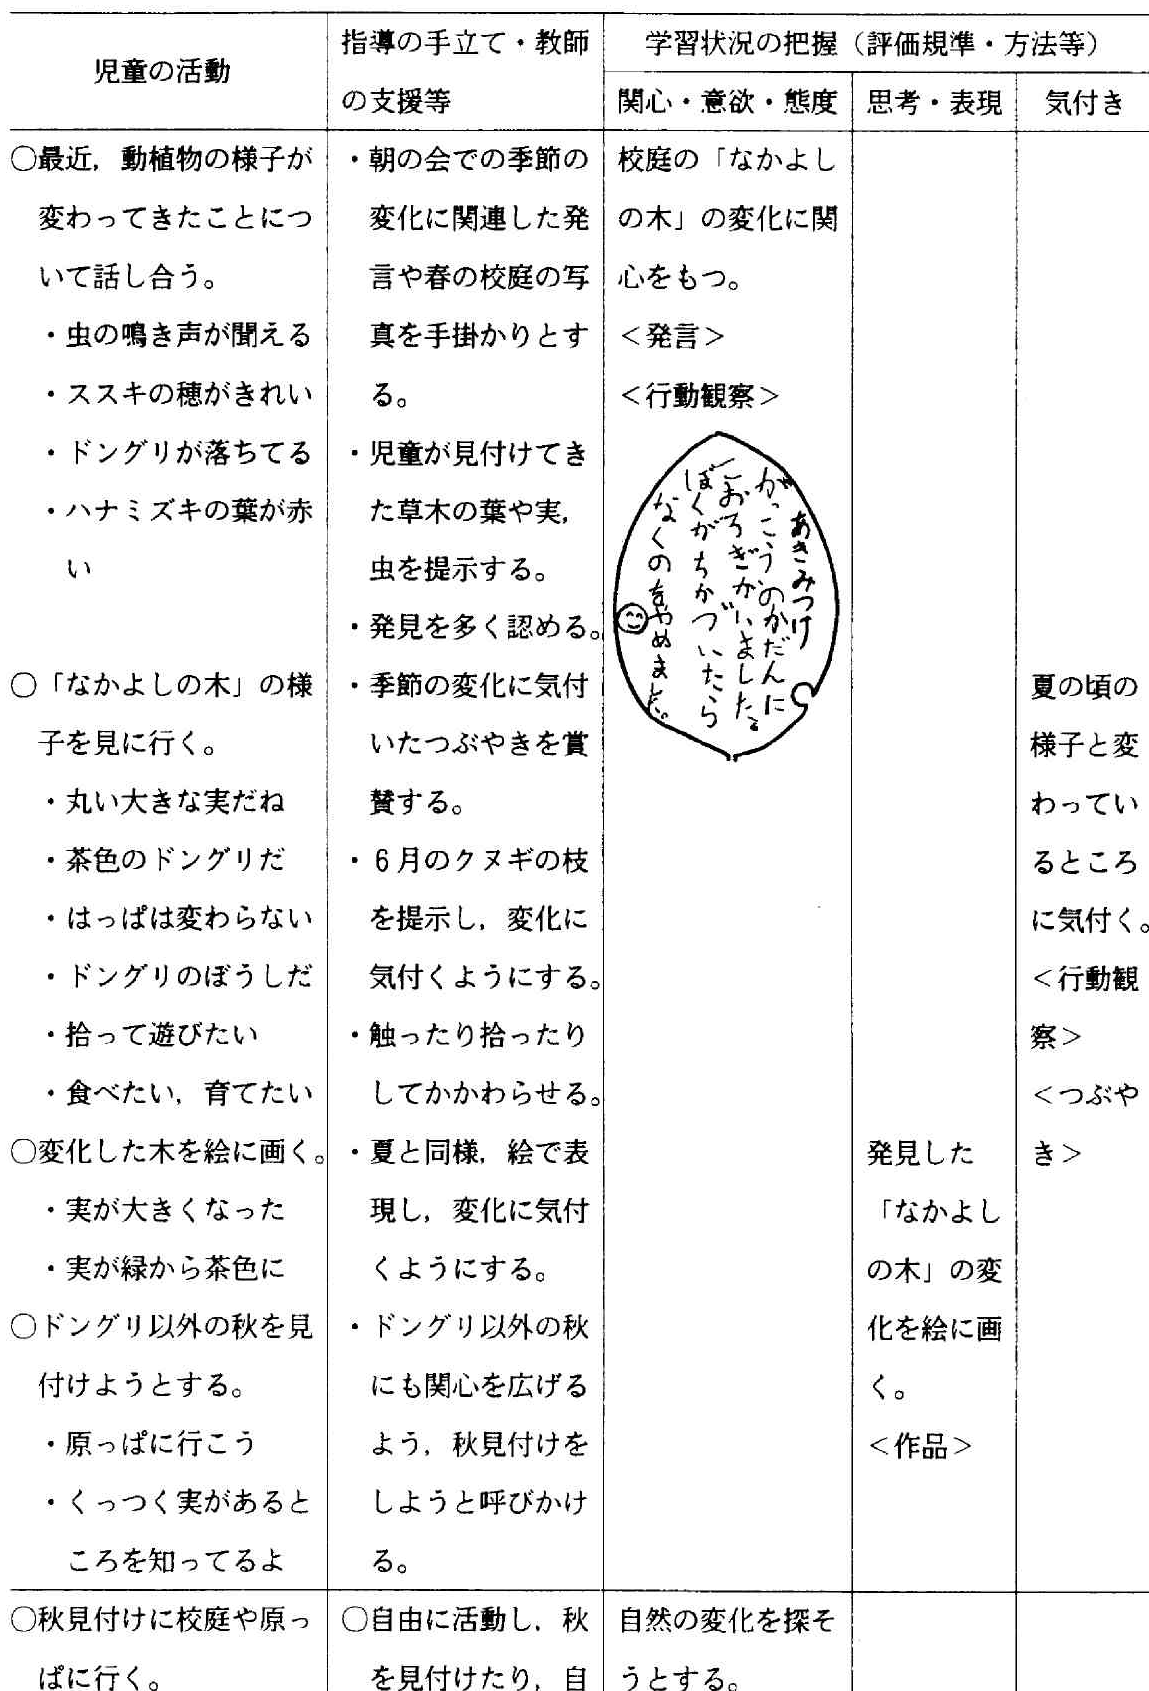 児童の活動
指導の手立て・教師
の支援等
学習状況の把握（評価規準・方法等）
関心・意欲・態度
思考・表現
気付き
○最近，動植物の様子が
変わってきたことにつ
いて話し合う。
・虫の鳴き声が聞える
・ススキの穂がきれい
・ドングリが落ちてる
・ハナミズキの葉が赤
い
○「なかよしの木」の様
子を見に行く。
・丸い大きな実だね
・茶色のドングリだ
・はっぱは変わらない
・ドングリのぼうしだ
・拾って遊びたい
・食べたい，育てたい
○変化した木を絵に画く。
・実が大きくなった
・実が緑から茶色に
○ドングリ以外の秋を見
付けようとする。
・原っぱに行こう
・くっつく実があると
ころを知ってるよ
・朝の会での季節の
変化に関連した発
言や春の校庭の写
真を手掛かりとす
る。
・児童が見付けてき
た草木の葉や実，
虫を提示する。
・発見を多く認める。
・季節の変化に気付
いたつぶやきを賞
賛する。
・６月のクヌギの枝
を提示し，変化に
気付くようにする。
・触ったり拾ったり
してかかわらせる。
・夏と同様，絵で表
現し，変化に気付
くようにする。
・ドングリ以外の秋
にも関心を広げる
よう，秋見付けを
しようと呼びかけ
る。
校庭の「なかよし
の木」の変化に関
心をもつ。
＜発言＞
＜行動観察＞
あきみつけ
がっこうのかだんに
こおろぎがいました。
ぼくがちかづいたら
なくのをやめました。
発見した
「なかよし
の木」の変
化を絵に画
く。
＜作品＞
夏の頃の
様子と変
わってい
るところ
に気付く。
＜行動観
察＞
＜つぶや
き＞
○秋見付けに校庭や原っ
ぱに行く。
○自由に活動し，秋
を見付けたり，自
自然の変化を探そ
うとする。